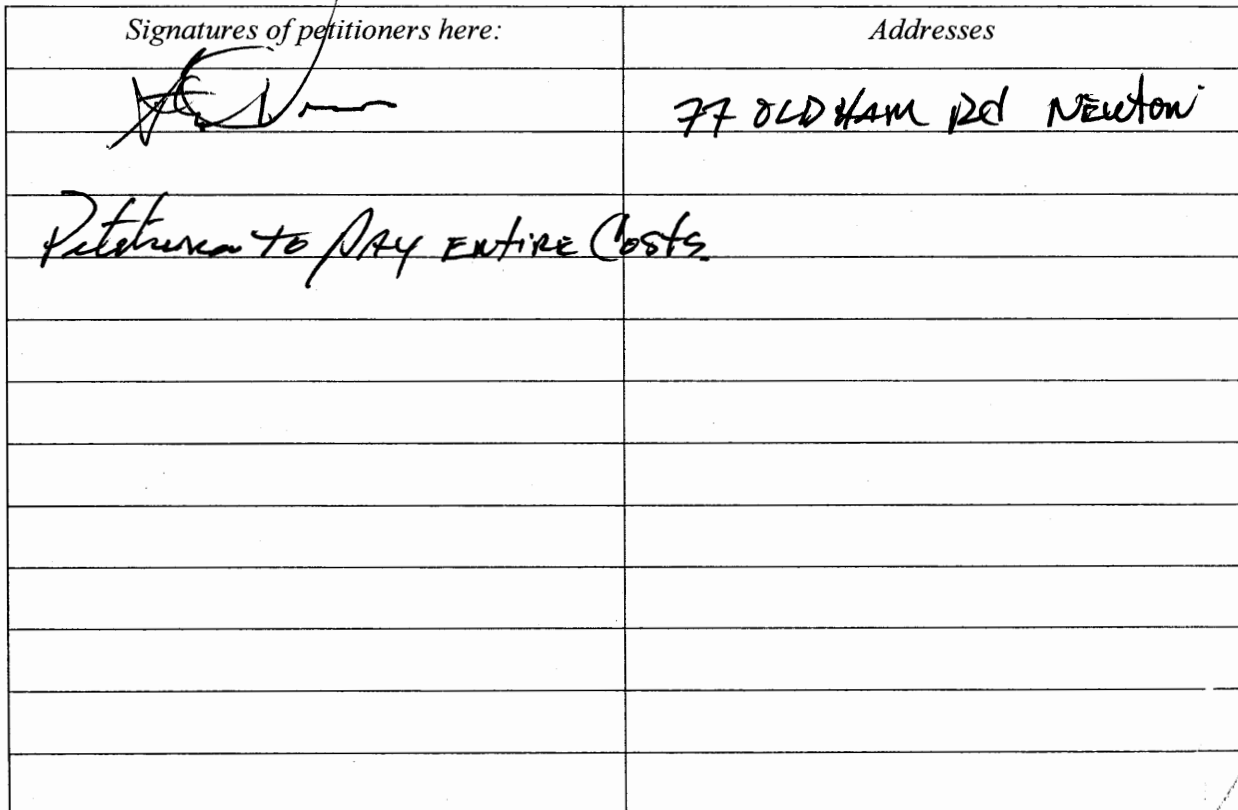 Signatures of petitioners here: Addresses
77 OLDHAM Rd NEWTON
Petitioner to PAY ENTIRE Costs